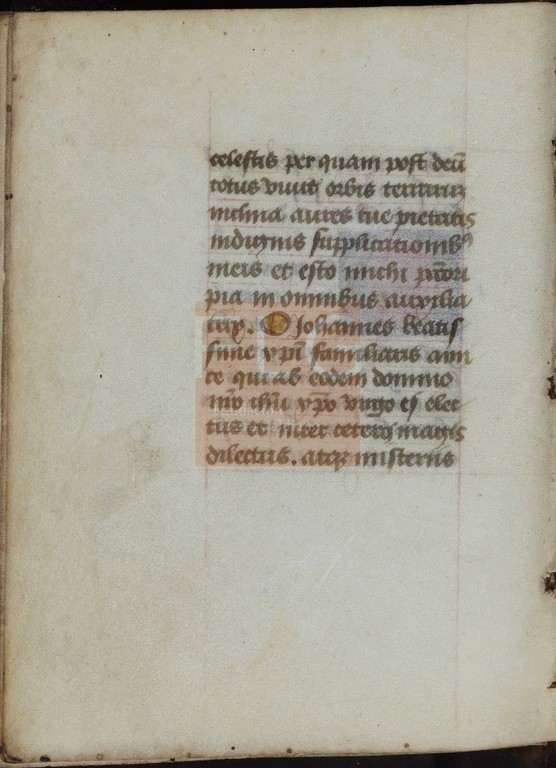 celestis per quam post deū
totus viuit orbis terrarum
inclina aures tue pietatis
indignis supplicationib9
meis et esto michi p̄cc̄ori
pia in omnibus auxilia
trix. O Johannes beatis
sime xp̄i familiaris ami
ce qui ab eodem domino
nr̄o ih̄u xp̄o virgo es elec
tus et inter ceteros magis
dilectus. atqꝫ misteriis